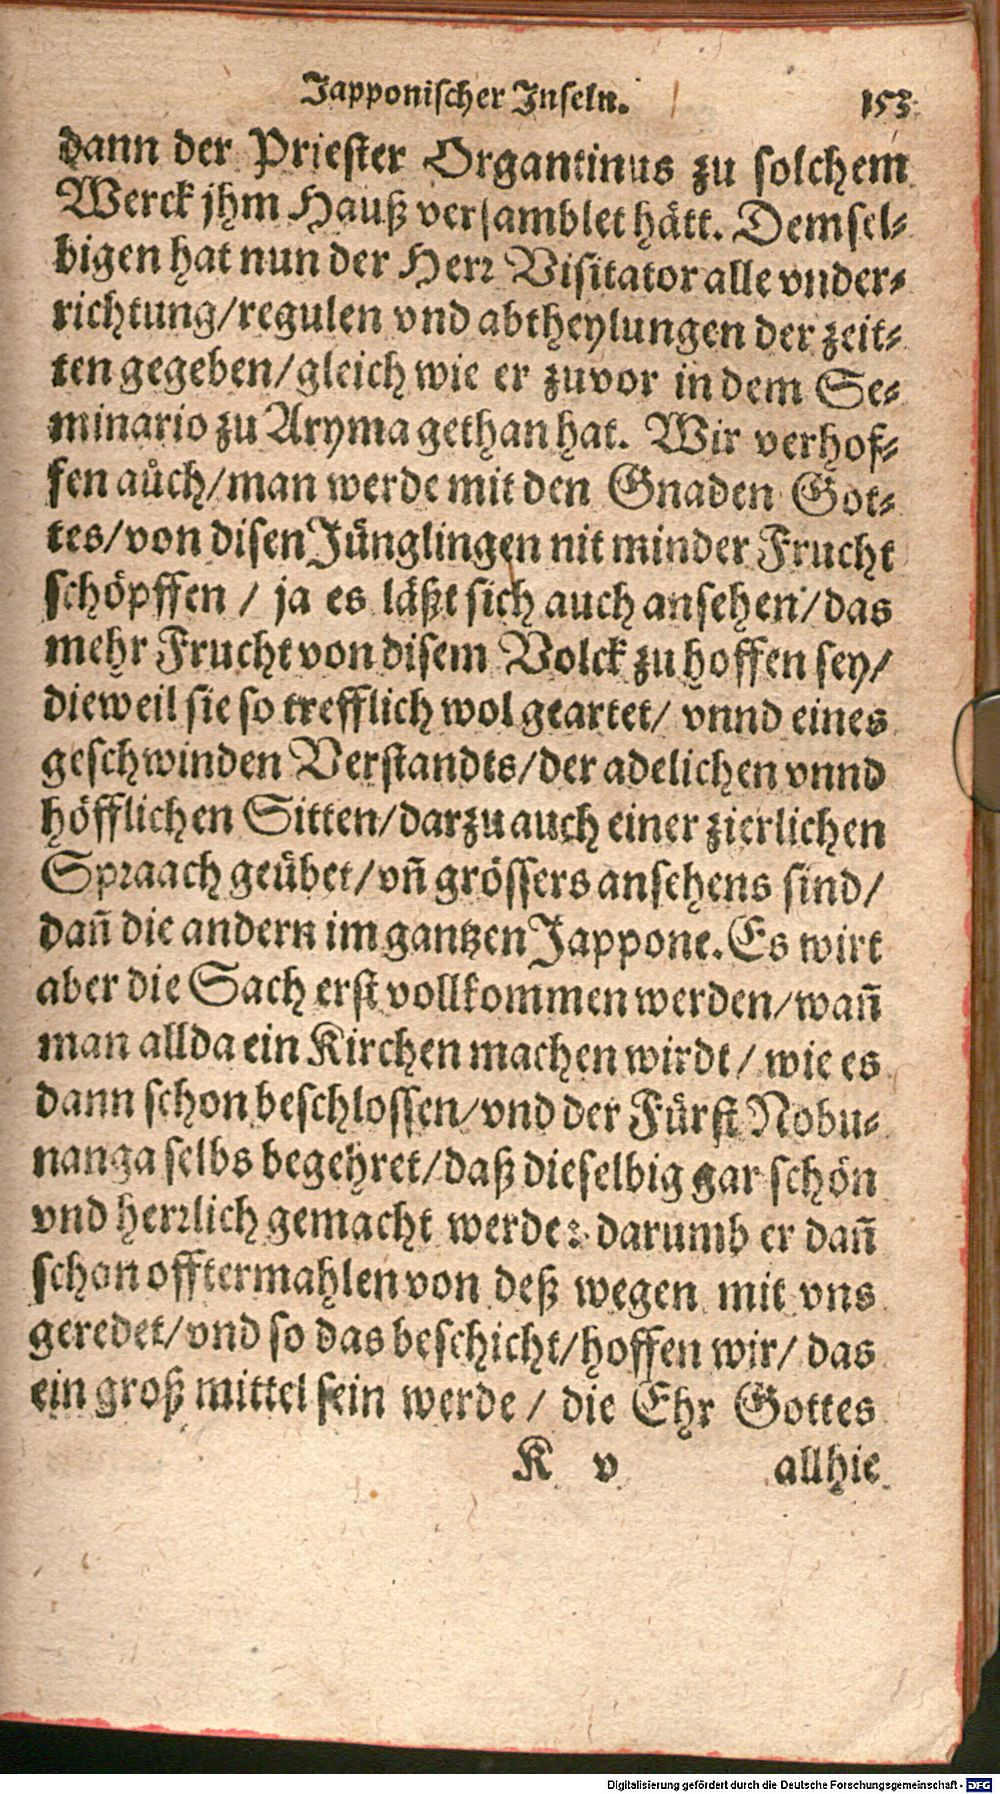 Japponischer Inseln. 153
dann der Priester Organtinus zu solchem
Werck jhm Hauß versamblet hätt. Demsel-
bigen hat nun der Herr Visitator alle vnder-
richtung/regulen vnd abtheylungen der zeit-
ten gegeben/gleich wie er zuvor in dem Se-
minario zu Aryma gethan hat. Wir verhof-
fen aůch/man werde mit den Gnaden Got-
tes/von disen Jünglingen nit minder Frucht
schöpffen / ja es läßt sich auch ansehen/das
mehr Frucht von disem Volck zu hoffen sey/
dieweil sie so trefflich wol geartet/ vnnd eines
geschwinden Verstandts/der adelichen vnnd
höfflichen Sitten/darzu auch einer zierlichen
Spraach geübet/vñ grössers ansehens sind/
dañ die andern im gantzen Jappone. Es wirt
aber die Sach erst vollkommen werden/wañ
man allda ein Kirchen machen wirdt/ wie es
dann schon beschlossen/vnd der Fürst Nobu-
nanga selbs begehret/daß dieselbig gar schön
vnd herrlich gemacht werde: darumb er dañ
schon offtermahlen von deß wegen mit vns
geredet/vnd so das beschicht/hoffen wir/ das
ein groß mittel sein werde / die Ehr Gottes
K v allhie
Digitalisierung gefördert durch die Deutsche Forschungsgemeinschaft - DFG